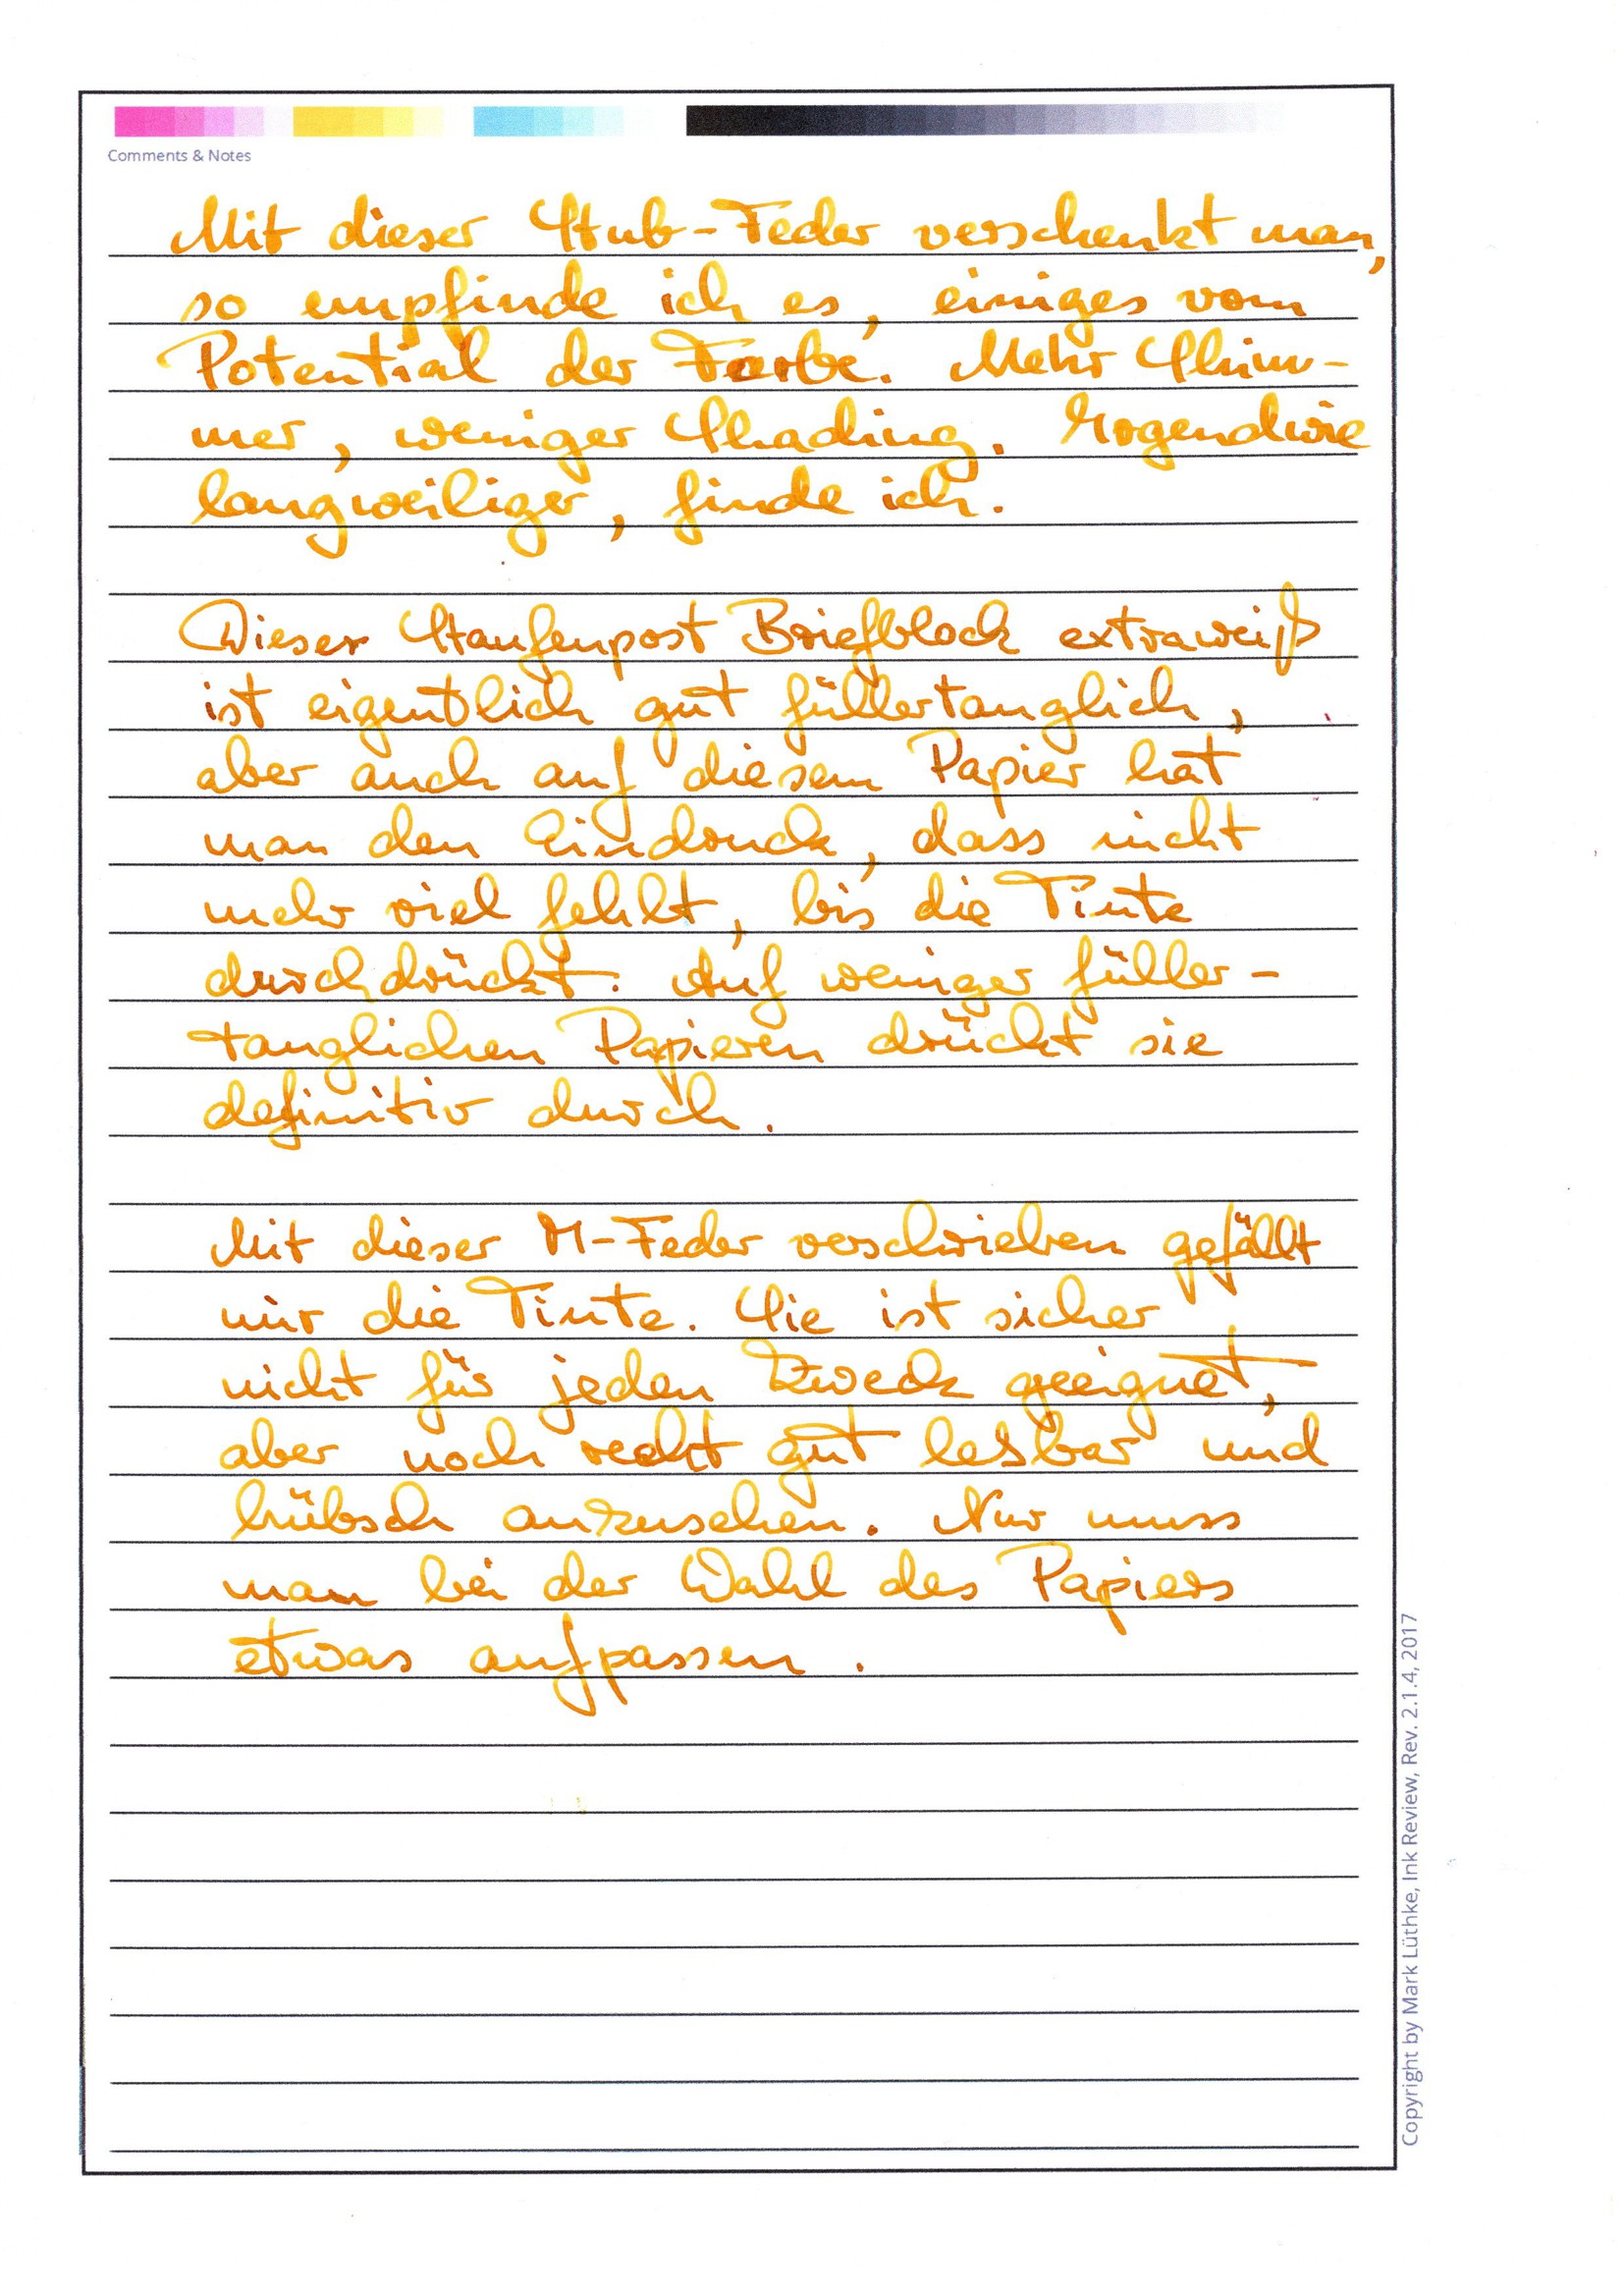 Comments & Notes
Mit dieser Stub-Feder verschenkt man,
so empfinde ich es, einiges vom
Potential der Farbe. Mehr Shim-
mer, weniger Shading. Irgendwie
langweiliger, finde ich.
Dieser Staufenpost Briefblock extraweiß
ist eigentlich gut füllertauglich,
aber auch auf diesem Papier hat
man den Eindruck, dass nicht
mehr viel fehlt, bis die Tinte
durchdrückt. Auf weniger füller-
tauglichen Papieren drückt sie
definitiv durch.
Mit dieser M-Feder verschrieben gefällt
mir die Tinte. Sie ist sicher
nicht für jeden Zweck geeignet,
aber noch recht gut lesbar und
hübsch anzusehen. Nur muss
man bei der Wahl des Papiers
etwas aufpassen.
Copyright by Mark Lüthke, Ink Review, Rev. 2.1.4, 2017